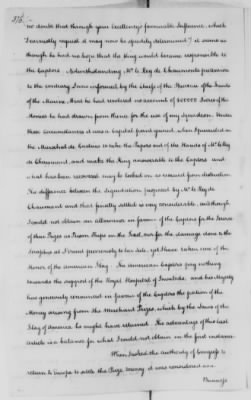 376.
no doubt that through your Excellency's favourable Influence, which
I earnestly request it may now be speedily determined. It seems as
though he had no hope that the King would become responsible to
the Captors. Notwithstanding Mr Le Ray de Chaumont's profession
to the contrary I was informed by the Chief of the Bureau of the Funds
of the Marine that he had rendered no account of 400000 livres of the
Monies he had drawn from thence for the use of my Squadron. Under
these circumstances it was a capital point gained when I persuaded
the Marechal de Castries to take the Papers out of the Hands of Mr Le Ray
de Chaumont, and make the King answerable to the Captors and
what has been recovered may be looked on as rescued from destruction.
The difference between the Liquidation proposed by Mr Le Ray de
Chaumont and that finally settled is very considerable, and though
I could not obtain an allowance in favour of the Captors for the service
of their Prize as Prison Ships in the Texel, nor for the damage done to the
Serapis at L'Orient previously to her Sale, yet I have taken care of the
Honor of the American Flag. The American Captors pay nothing
towards the support of the Royal Hospital of Invalids, and his Majesty
has generously renounced in favour of the Captors the portion of the
Money arising from the Merchant Prizes, which by the Laws of the
Flag of America he ought have retained. The advantage of this last
article is a balance for what I could not obtain in the first instance.
When I asked the authority of Congress to
return to Europe to settle the Prize money, it was considered as a
Business